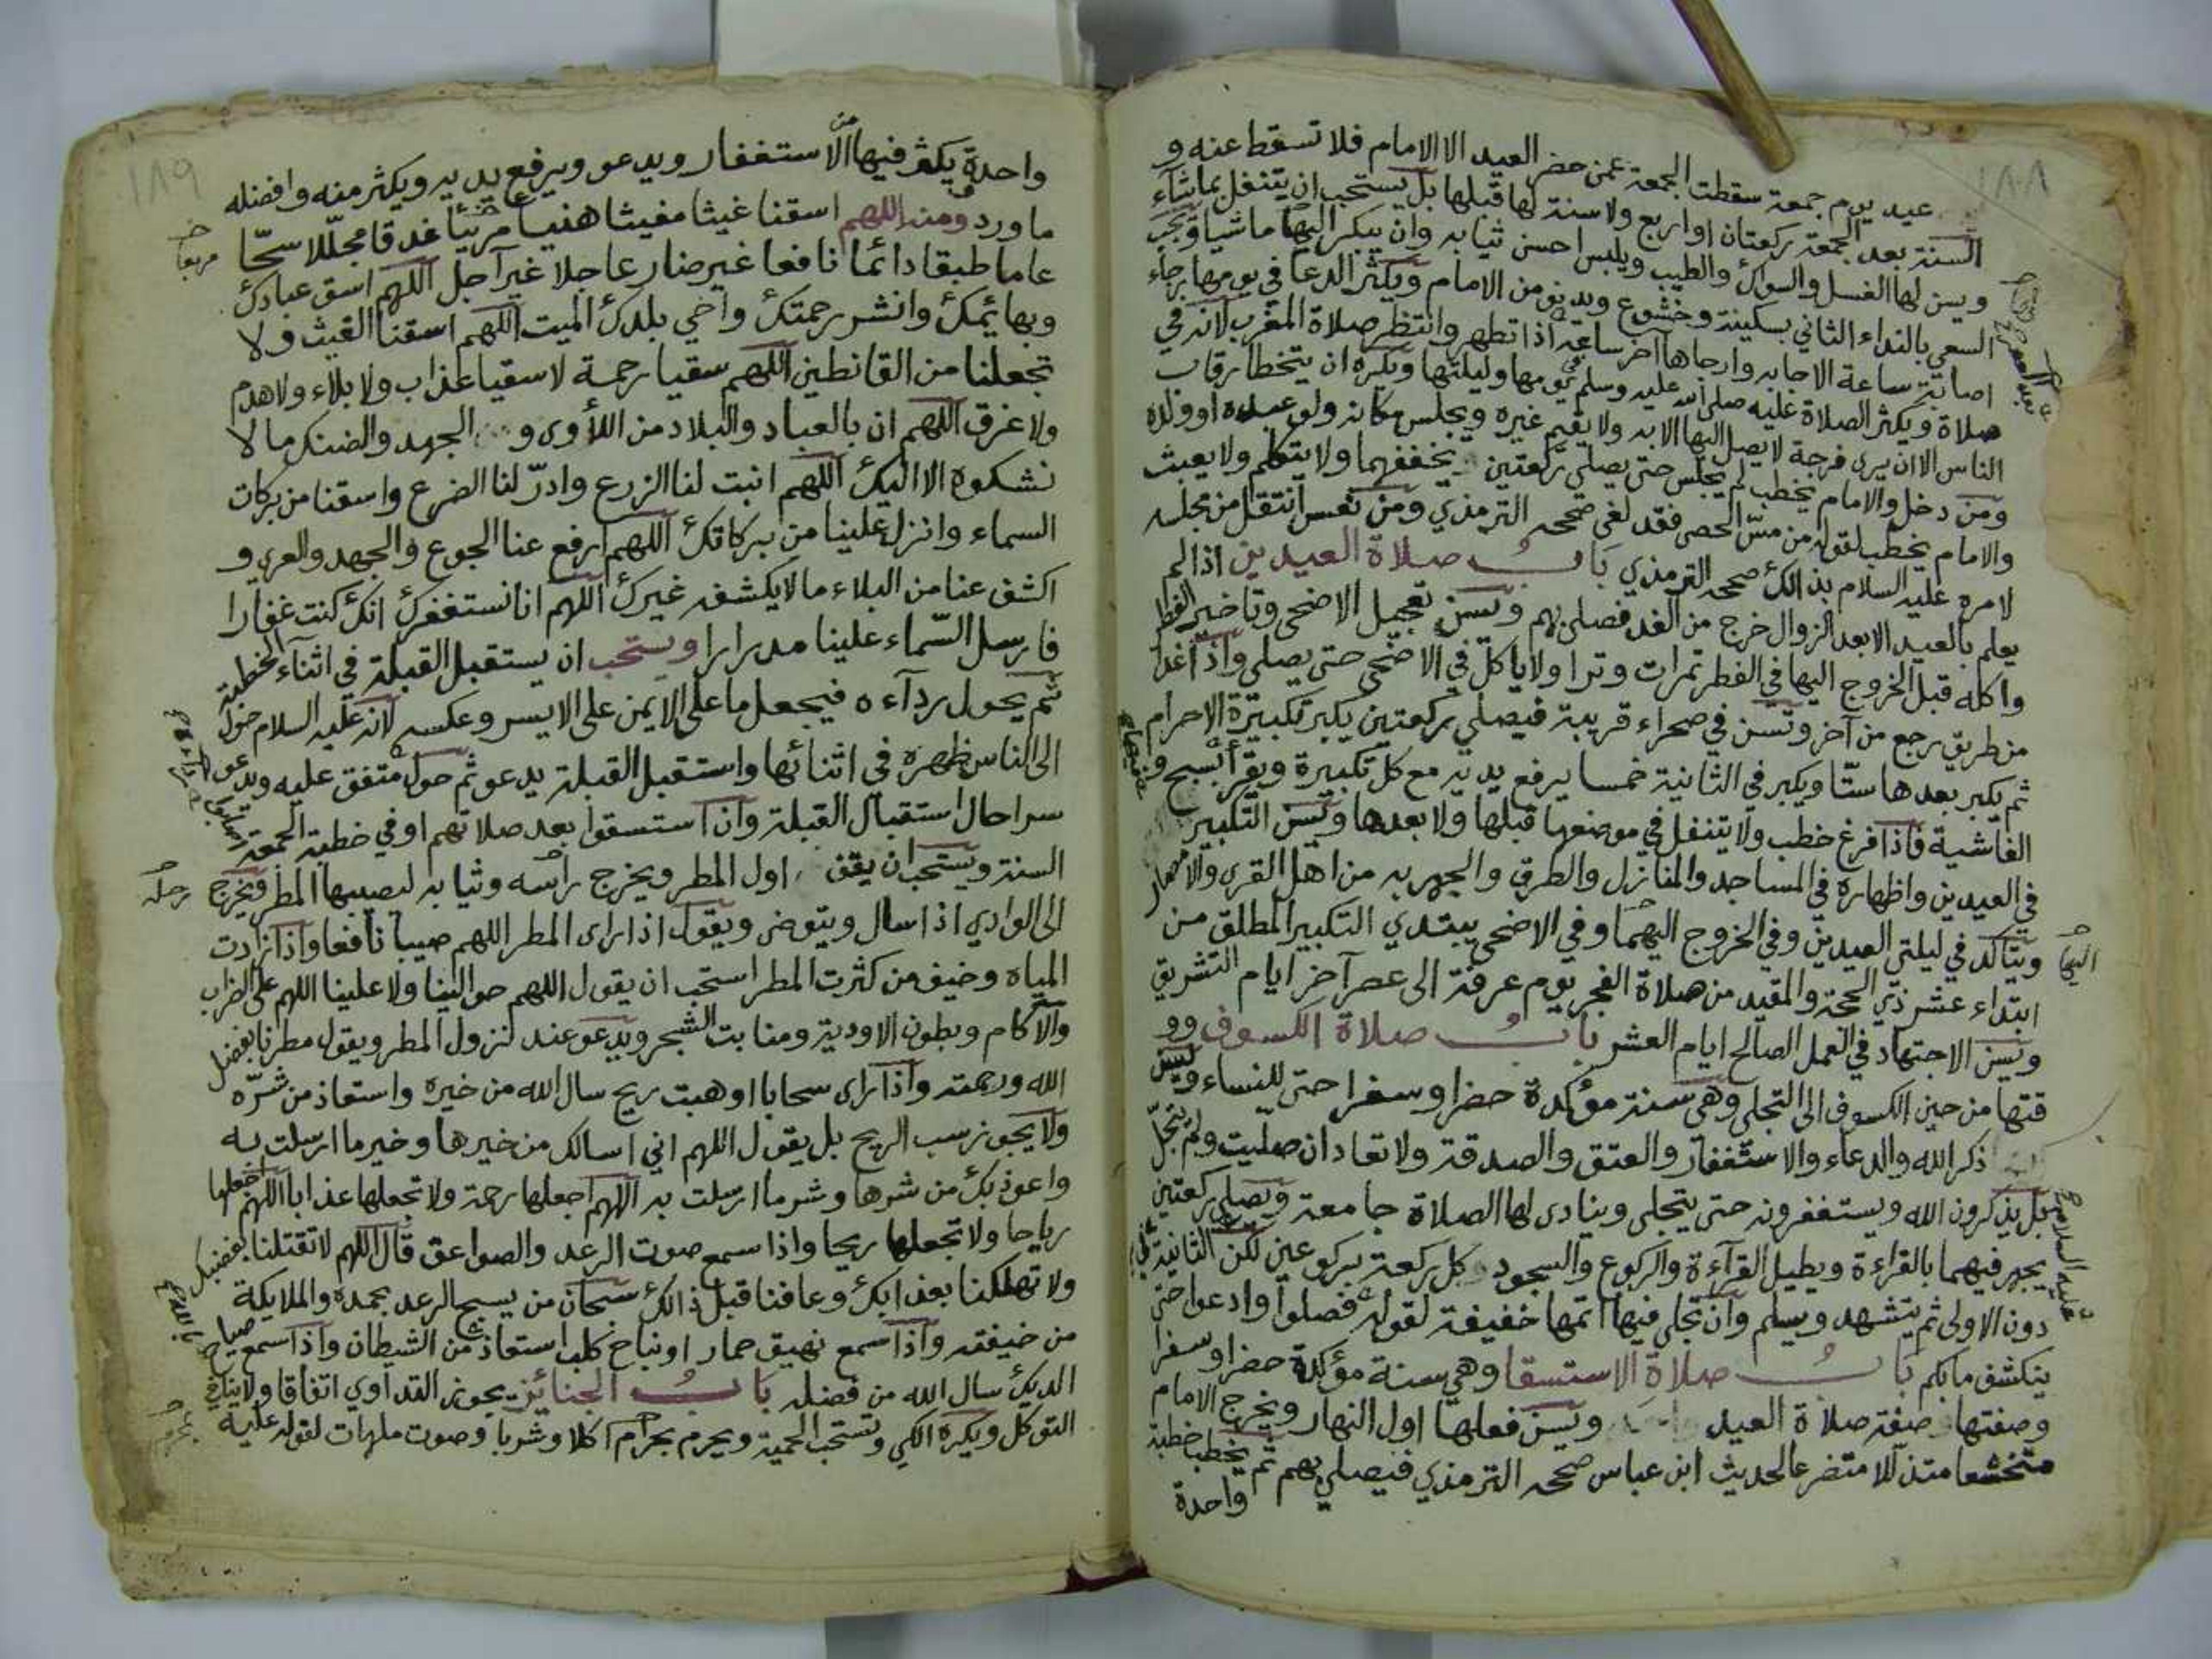 ١٨٨
عيد يوم جمعة سقطت الجمعة عمن حضر العيد الا الامام فلا تسقط عنه و
السنة بعد الجمعة ركعتان او اربع ولا سنة لها قبلها بل يستحب ان يتنفل بما شاء
ويسن لها الغسل والسواك والطيب ويلبس احسن ثيابه وان يبكر اليها ماشيا ويجب
السعي بالنداء الثاني بسكينة وخشوع ويدنو من الامام ويكثر الدعا في يومها رجاء
اصابة ساعة الاجابه وارجاها آخر ساعة اذا تطهر وانتظر صلاة المغرب لانه في
صلاة ويكثر الصلاة عليه صلى الله عليه وسلم في يومها وليلتها ويكره ان يتخطا رقاب
الناس الا ان يرى فرجة لا يصل اليها الا به ولا يقيم غيره ويجلس مكانه ولو عبده او ولده
ومن دخل والامام يخطب لم يجلس حتى يصلي ركعتين يخففهما ولا يتكلم ولا يعبث
والامام يخطب لقوله من مسّ الحصى فقد لغى صححه الترمذي ومن نعس انتقل من مجلسه
لامره عليه السلام بذالك صححه الترمذي باب صلاة العيدين اذا لم
يعلم بالعيد الا بعد الزوال خرج من الغد فصلى بهم ويسن تعجيل الاضحى وتاخير الفطر
واكله قبل الخروج اليها في الفطر تمرات وترا ولا ياكل في الاضحى حتى يصلي واذا غدا
من طريق رجع من آخر وتسن في صحراء قريبة فيصلي ركعتين يكبر تكبيرة الاحرام
ثم يكبر بعدها ستّا ويكبر في الثانية خمسا يرفع يديه مع كل تكبيرة ويقرأ بسبح و
الغاشية فاذا فرغ خطب ولا يتنفل في موضعها قبلها ولا بعدها ويسن التكبير
في العيدين واظهاره في المساجد والمنازل والطرق والجهر به من اهل القرى والامصار
ويتاكد في ليلتي العيدين وفي الخروج اليهما وفي الاضحى يبتدي التكبير المطلق من
اليها
ابتداء عشر ذي الحجة والمقيد من صلاة الفجر يوم عرفة الى عصر آخر ايام التشريق
ويسن الاجتهاد في العمل الصالح ايام العشر باب صلاة الكسوف وو
قتها من حين الكسوف الى التجلي وهي سنة مؤكدة حضرا وسفرا حتى للنساء ويسن
ذكر الله والدعاء والاستغفار والعتق والصدقة ولا تعاد ان صليت ولم يتجلّ
بل يذكرون الله ويستغفرونه حتى يتجلى وينادى لها الصلاة جامعة ويصلي ركعتين
يجهر فيهما بالقراءة ويطيل القرآءة والركوع والسجود كل ركعة بركوعين لكن الثانية
دون الاولى ثم يتشهد ويسلم وان تجلى فيها اتمها خفيفة لقوله فصلوا وادعوا حتى
عليه السلام
ينكشف ما بكم باب صلاة الاستسقا وهي سنة مؤكدة حضرا وسفرا
وصفتها صفة صلاة العيد ويسن فعلها اول النهار ويخرج الامام
متخشعا متذللا متضرعا لحديث ابن عباس صححه الترمذي فيصلي بهم ثم يخطب خطبة
واحدة
١٨٩
واحدة يكثر فيها الاستغفار ويدعو ويرفع يديه ويكثر منه وافضله
ما ورد ومنه اللهم اسقنا غيثا مغيثا هنيا مريئا غدقا مجللا سحّا
مريعا
عاما طبقا دائما نافعا غير ضار عاجلا غير آجل اللهم اسق عبادك
وبهائمك وانشر رحمتك واحي بلدك الميت اللهم اسقنا الغيث ولا
تجعلنا من القانطين اللهم سقيا رحمة لا سقيا عذاب ولا بلاء ولا هدم
ولا غرق اللهم ان بالعباد والبلاد من اللأوى و الجهد والضنك ما لا
نشكوه الا اليك اللهم انبت لنا الزرع وادرّ لنا الضرع واسقنا من بركات
السماء وانزل علينا من بركاتك اللهم ارفع عنا الجوع والجهد والعري و
اكشف عنا من البلاء ما لا يكشفه غيرك اللهم انا نستغفرك انك كنت غفارا
فارسل السّماء علينا مدرارا ويستحب ان يستقبل القبلة في اثناء الخطبة
ثم يحول ردآءه فيجعل ما على الايمن على الايسر وعكسه لانه عليه السلام حول
الى الناس ظهره في اثنائها واستقبل القبلة يدعو ثم حول متفق عليه ويدعو
سرا حال استقبال القبلة وان استسقوا بعد صلاتهم او في خطبة الجمعة
السنة ويستحب ان يقف اول المطر ويخرج راسه وثيابه ليصيبها المطر ويخرج
رحله
الى الوادي اذا سال ويتوضى ويقول اذا راى المطر اللهم صيبا نافعا واذا زادت
المياه وخيف من كثرت المطر استحب ان يقول اللهم حوالينا ولا علينا اللهم على الضراب
والآكام وبطون الاودية ومنابت الشجر ويدعو عند لنزول المطر ويقول مطرنا بفضل
الله ورحمته واذا راى سحابا او هبت ريح سال الله من خيره واستعاذ من شرّه
ولا يجوز سب الريح بل يقول اللهم اني اسالك من خيرها وخير ما ارسلت به
واعوذ بك من شرها وشر ما ارسلت به اللهم اجعلها رحمة ولا تجعلها عذابا اللهم اجعلها
رياحا ولا تجعلها ريحا واذا سمع صوت الرعد والصواعق قال اللهم لا تقتلنا بغضبك
ولا تهلكنا بعذابك وعافنا قبل ذالك سبحان من يسبح الرعد بحمده والملايكة
من خيفته واذا سمع نهيق حمار او نباح كلب استعاذ من الشيطان واذا سمع صياح
الديك سال الله من فضله باب الجنائز يجوز التداوي اتفاقا ولا ينافي
التوكل ويكره الكي وتستحب الحمية ويحرم بحرام اكلا وشربا وصوت ملهات لقوله عليه